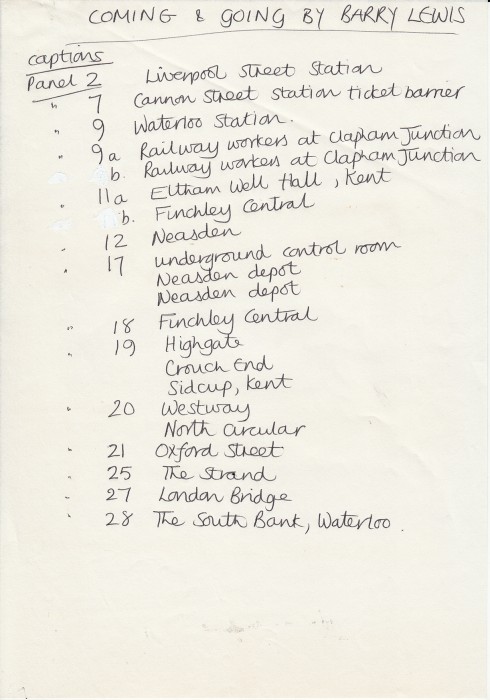 COMING & GOING BY BARRY LEWIS
captions
Panel 2 Liverpool Street Station
" 7 Cannon Street Station ticket barrier
" 9 Waterloo Station.
" 9a Railway workers at Clapham Junction
b. Railway workers at Clapham Junction
" 11a Eltham Well Hall, Kent
b. Finchley Central
" 12 Neasden
" 17 underground control room
Neasden depot
Neasden depot
" 18 Finchley Central
" 19 Highgate
Crouch End
Sidcup, Kent
" 20 Westway
North Circular
" 21 Oxford Street
" 25 The Strand
" 27 London Bridge
" 28 The South Bank, Waterloo.